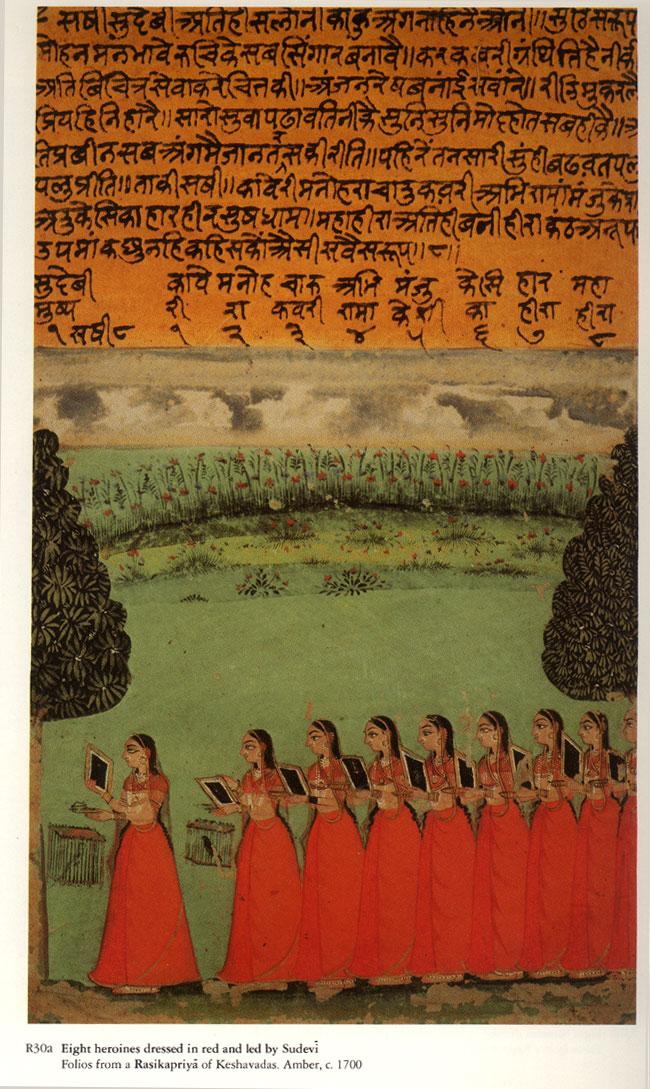 सषी सुदेबी अतिही सलोनी काहु अंगनाहिनै ॥ सुठि सरूप
मोहन मन भावे रुचिकै सब सिंगार बनावै॥ कर कबरी ग्रंथिति है नीकी
अति बिचित्र सेवा करे चित्त की॥ अंजन रेष बनाई सवांरे॥ रीझि मुकर लै
प्रियहि निहारै॥ सारो सुवा पढावति नीकै सुनि सुनि मोद होत सब हीकै॥ अ
ति प्रबीन सब अंगमै जानत रसकी रीति॥ पहिरें तन सारी सुंही बढवत पलु
पलु प्रीति॥ ताकी सषी॥ कावेरी मनोहरा चारु कवरी अभिरामा मंजु केशी
अरु केसिका हार हीरा सुषधाम॥ महाहीरा अतिही बनी हीरा कंठ अनूप
उपमां कछु नहि कहि सकों अैसी सवै सरूप॥८॥
सुदेबी कावे मनोह चारु अभि मंजु केसि हार महा
मुष्य री रा कवरी रामा केशी का हीरा हीरा
१ सषी ८ १ २ ३ ४ ५ ६ ७ ८
R30a Eight heroines dressed in red and led by Sudevī
Folios from a Rasikapriyā of Keshavadas. Amber, c. 1700